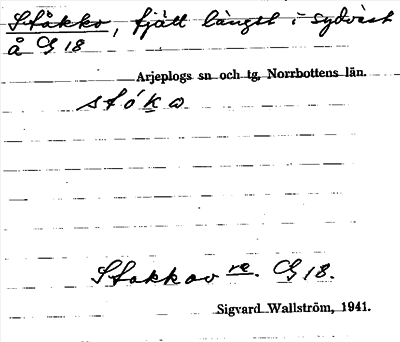 Ståkko, fjäll längst i sydväst
å G 18
Arjeplogs sn och tg, Norrbottens län.
stókɷ
Stokkov re. G 18.
Sigvard Wallström, 1941.